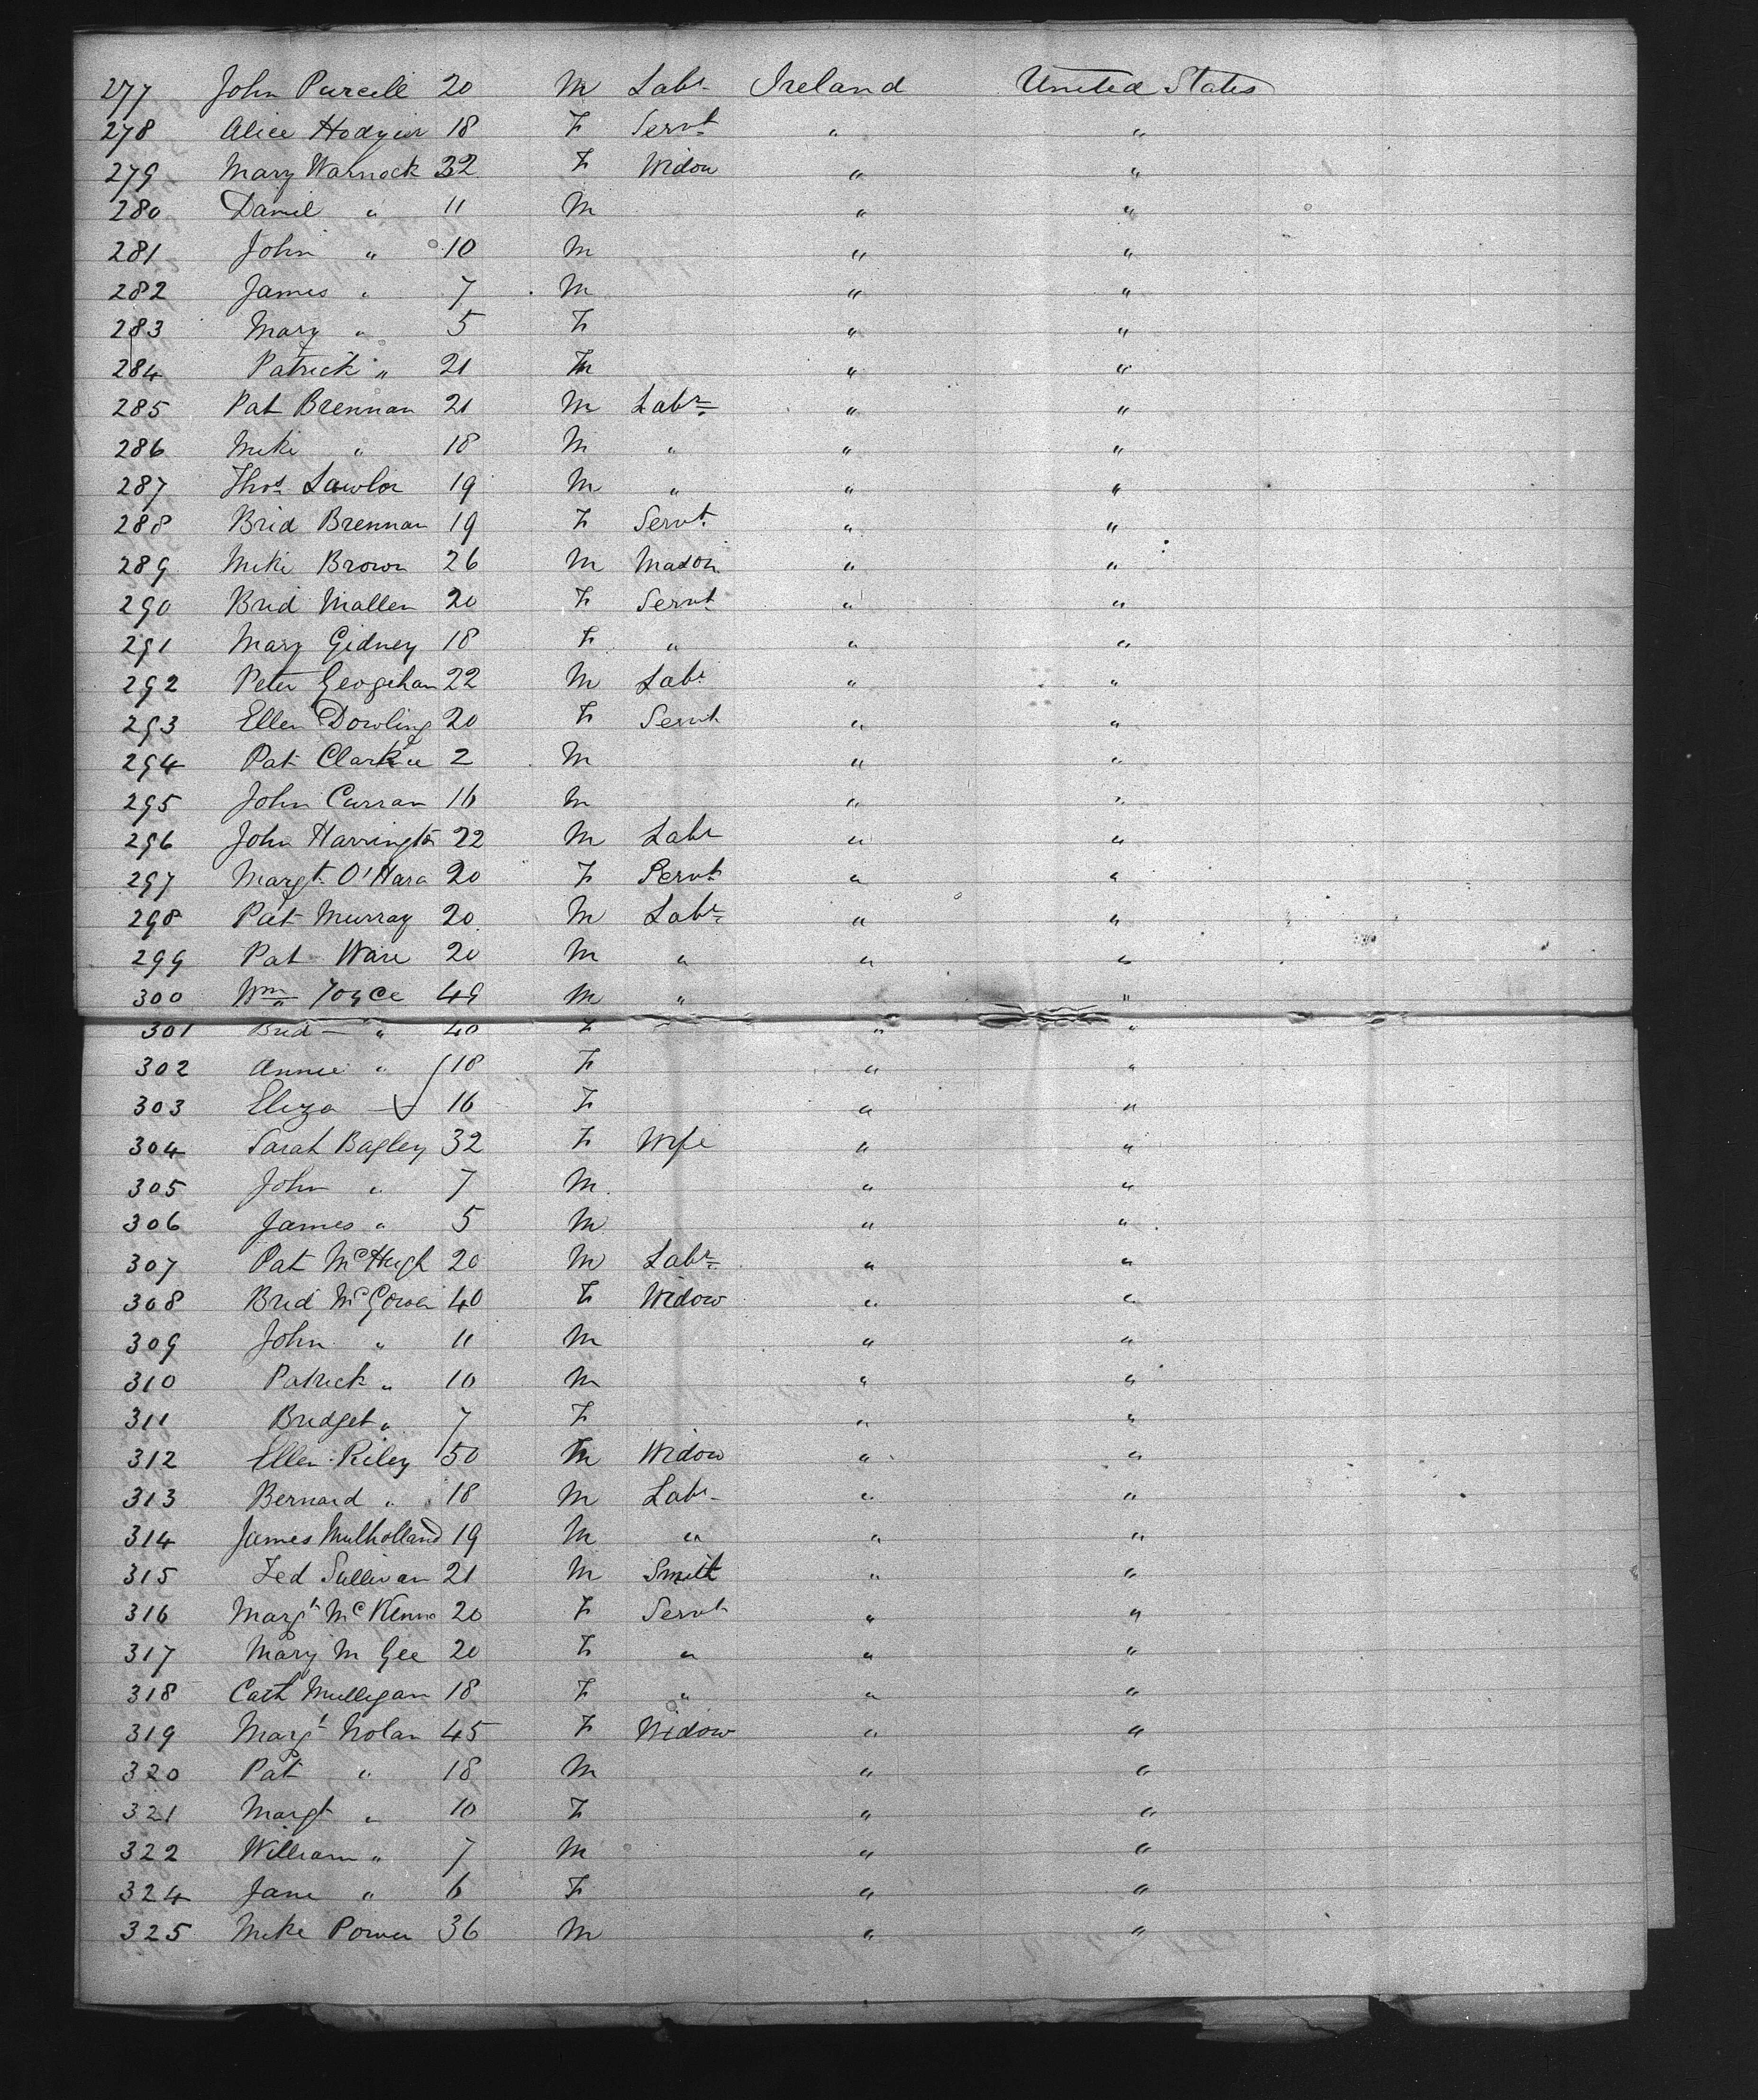 277 John Purcell 20 M Labr Ireland United States
278 Alice Hodgier 18 F Servt " "
279 Mary Warnock 32 F Widow " "
280 Daniel " 11 M " "
281 John " 10 M " "
282 James " 7 M " "
283 Mary " 5 F " "
284 Patrick " 21 M " "
285 Pat Brennan 21 M Labr " "
286 Mike " 18 M " " "
287 Thos Lawlor 19 M " " "
288 Brid Brennan 19 F Servt " "
289 Mike Brown 26 M Mason " "
290 Brid Mallen 20 F Servt " "
291 Mary Gidney 18 F " " "
292 Peter Geogehan 22 M Labr " "
293 Ellen Dowling 20 F Servt " "
294 Pat Clarke 2 M " "
295 John Curran 16 M " "
296 John Harrington 22 M Labr " "
297 Margt O'Hara 20 F Servt " "
298 Pat Murray 20 M Labr " "
299 Pat Ware 20 M " " "
300 Wm Joyce 49 M " "
301 Brid " 40 F " "
302 Annie " 18 F " "
303 Eliza 16 F " "
304 Sarah Bagley 32 F Wife " "
305 John " 7 M " "
306 James " 5 M " "
307 Pat McHugh 20 M Labr " "
308 Brid McGowan 40 F Widow " "
309 John " 11 M " "
310 Patrick " 10 M " "
311 Bridget " 7 F " "
312 Ellen Riley 50 M Widow " "
313 Bernard " 18 M Labr " "
314 James Mulholland 19 M " " "
315 Ted Sullivan 21 M Smith " "
316 Margt McKenna 20 F Servt " "
317 Mary M Gee 20 F " " "
318 Cath Mulligan 18 F " " "
319 Margt Nolan 45 F Widow " "
320 Pat " 18 M " "
321 Margt " 10 F " "
322 William " 7 M " "
324 Jane " 6 F " "
325 Mike Power 36 M " "